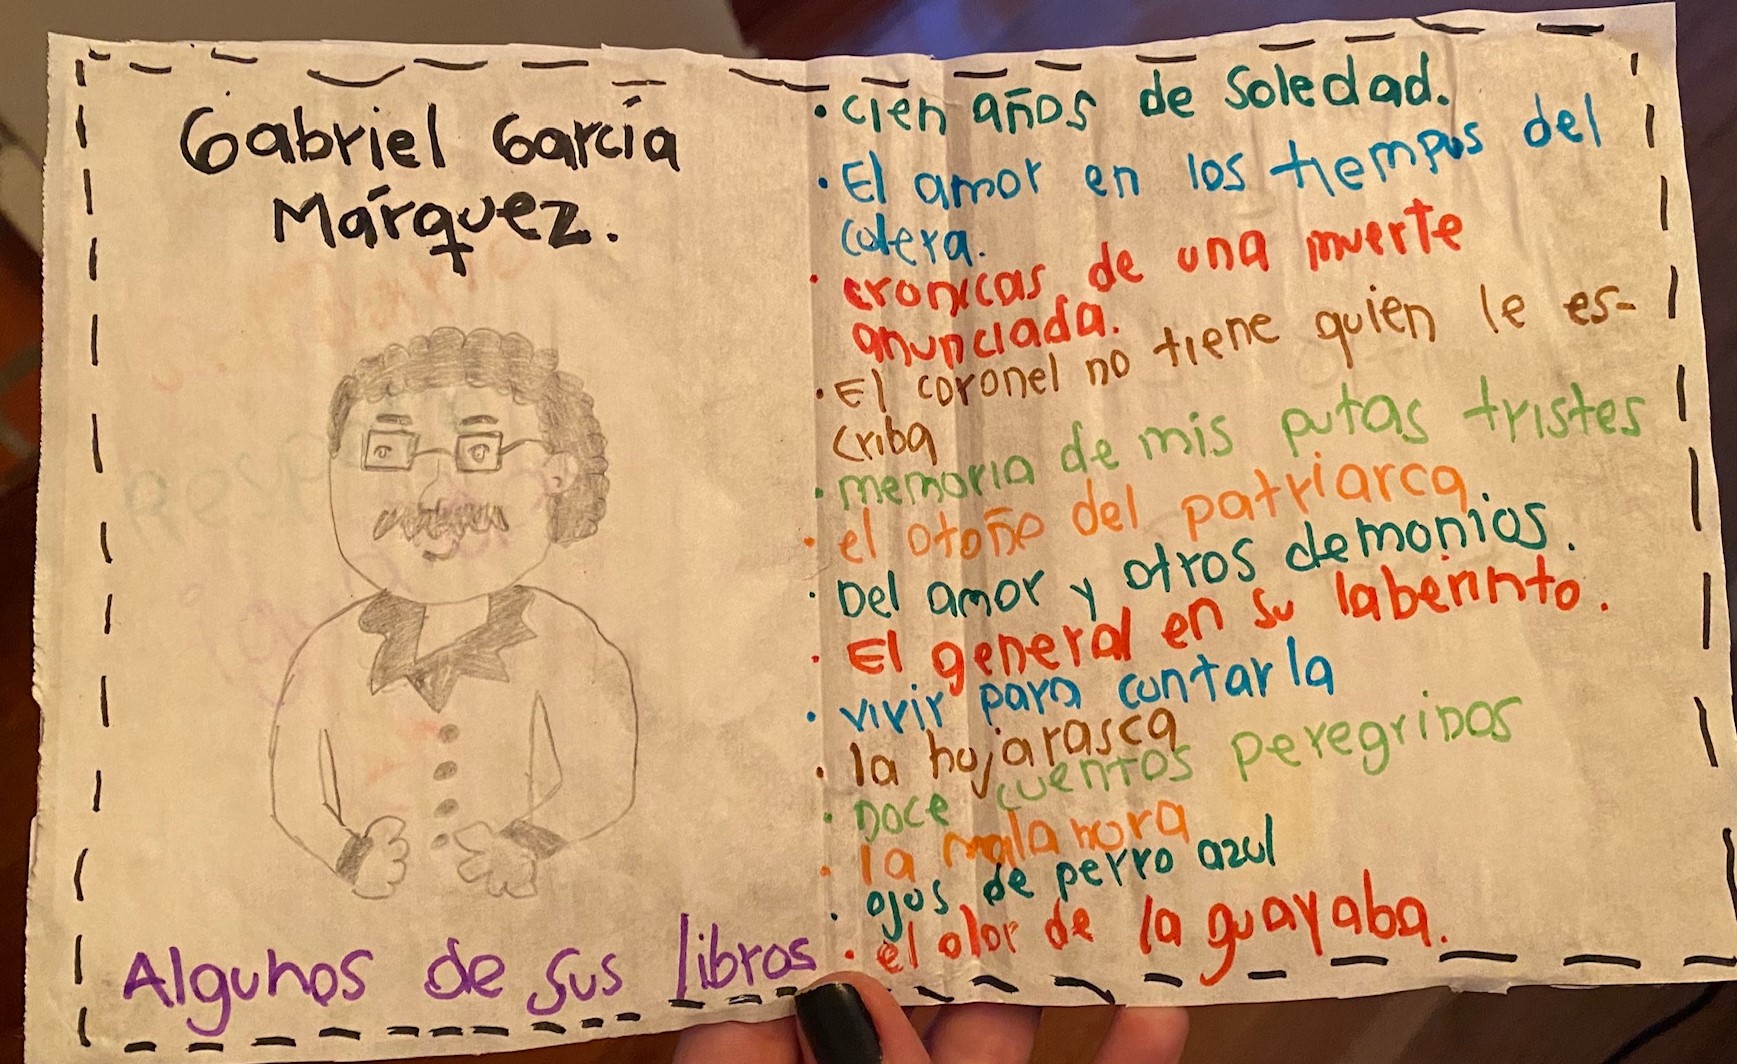 Gabriel García
Márquez.
Algunos de sus libros
• cien años de Soledad.
• El amor en los tiempos del
colera.
• cronicas de una muerte
anunciada.
• El coronel no tiene quien le es-
criba
• memoria de mis putas tristes
• el otoño del patriarca
• Del amor y otros demonios.
• El general en su laberinto.
• vivir para contarla
• la hojarasca
• Doce cuentos peregrinos
• la mala hora
• ojos de perro azul
• el olor de la guayaba.